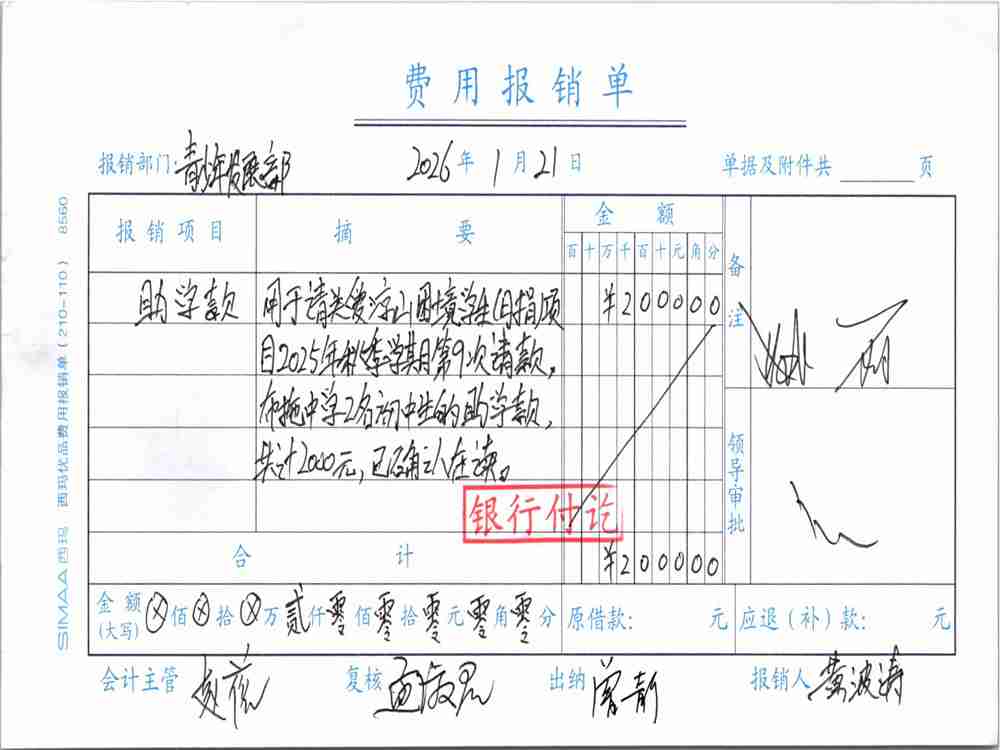 费用报销单
报销部门：青少年发展部 2026年1月21日 单据及附件共 页
报销项目 摘要 金额 备注
百十万千百十元角分
助学款 用于请关爱凉山困境学生(月捐)项 ¥200000
目2025年秋季学期第9次请款，
布拖中学2名初中生的助学款，
共计2000元，已确认在读。
银行付讫
领导审批
合计 ¥200000
金额(大写) ⊗佰⊗拾⊗万贰仟零佰零拾零元零角零分 原借款： 元 应退（补）款： 元
会计主管 复核 出纳 曾青 报销人 黄波涛
SIMAA西玛 西玛优品费用报销单（210-110） 8560